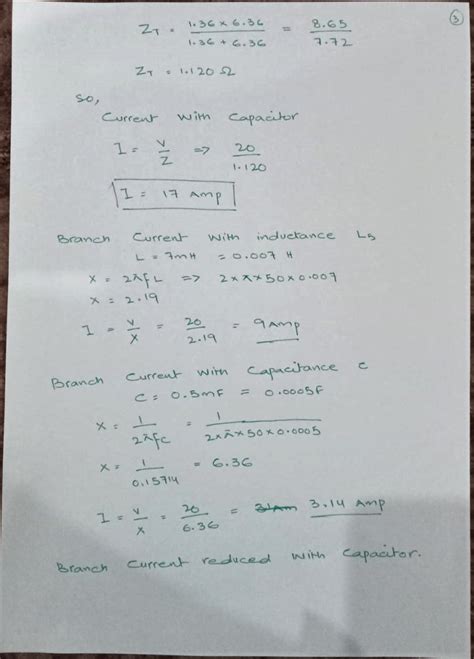 3
Z_T = 1.36 × 6.36 / 1.36 + 6.36 = 8.65 / 7.72
Z_T = 1.120 Ω
So,
Current with Capacitor
I = V/Z => 20/1.120
I = 17 Amp
Branch Current with inductance L5
L = 7mH = 0.007 H
X = 2πfL => 2×π×50×0.007
X = 2.19
I = V/X = 20/2.19 = 9Amp
Branch Current with Capacitance C
C = 0.5mF = 0.0005F
X = 1/2πfC = 1/2×π×50×0.0005
X = 1/0.15714 = 6.36
I = V/X = 20/6.36 = 3.14 Amp
Branch Current reduced with Capacitor.